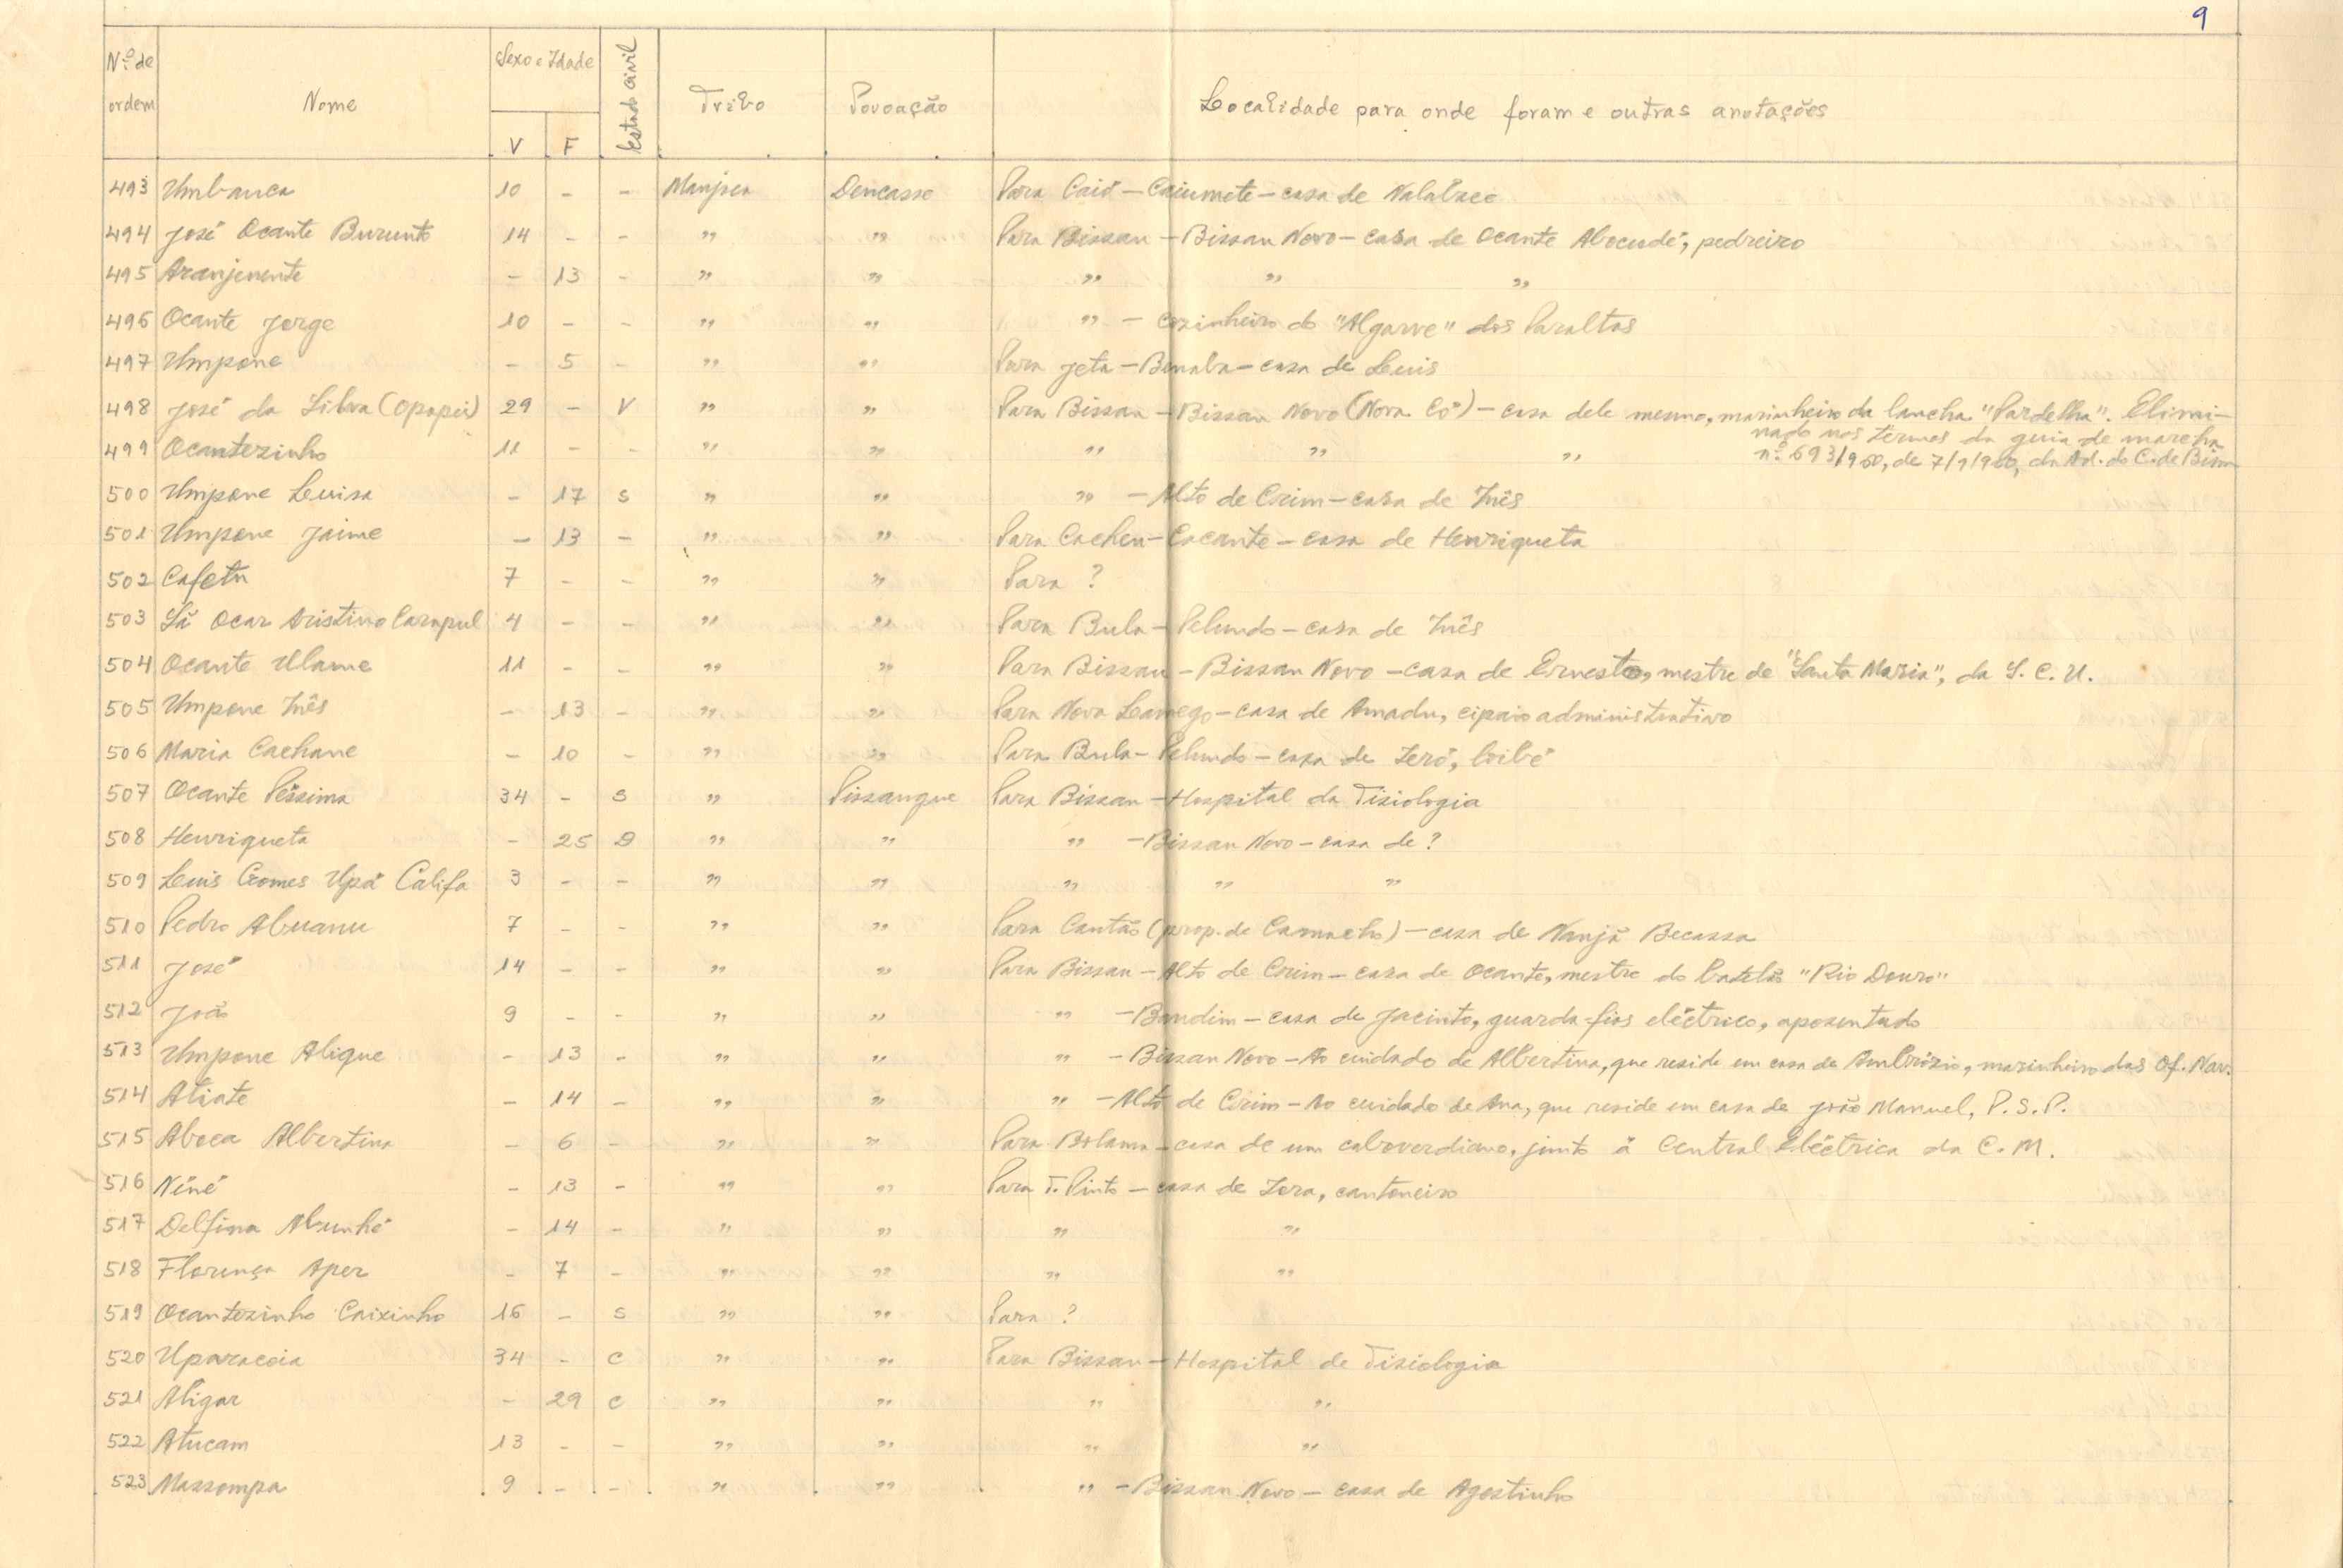 9
Nº de ordem | Nome | Sexo e Idade V F | Estado civil | Tribo | Povoação | Localidade para onde foram e outras anotações
493 Umbanca 10 - - Manjaca Dencasse Para Caió - Caiumete - casa de
494 José Ocante Burunto 14 - - " " Para Bissau - Bissau Novo - casa de Ocante Abocudé, pedreiro
495 Aranjenente - 13 - " " " " "
496 Ocante Jorge 10 - - " " " - cozinheiro do "Algarve" dos Paraltas
497 Umpane - 5 - " " Para Jeta - - casa de Luis
498 José da Silva (Opapei) 29 - V " " Para Bissau - Bissau Novo (Nova Có) - casa dele mesmo, marinheiro da lancha "Pardelha". Elimi-
nado nos termos da guia de marcha
499 Ocantezinho 11 - - " " " " " nº 693/960, de 7/9/960, da Ad. do C. de Bissau
500 Umpane Luisa - 17 S " " " - Alto de Crim - casa de Inês
501 Umpane Jaime - 13 - " " Para Cacheu - Cacante - casa de Henriqueta
502 Cafetu 7 - - " " Para ?
503 Sá Ocar Aristino Carapul 4 - - " " Para Bula - Pelundo - casa de Inês
504 Ocante Ulame 11 - - " " Para Bissau - Bissau Novo - casa de Ernesto, mestre de "Santa Maria", da S. C. U.
505 Umpane Inês - 13 - " " Para Nova Lamego - casa de Amadu, cipaio administrativo
506 Maria Cachane - 10 - " " Para Bula - Pelundo - casa de Zeró,
507 Ocante Péssima 34 - S " Pissangue Para Bissau - Hospital da Tisiologia
508 Henriqueta - 25 D " " " - Bissau Novo - casa de ?
509 Luis Gomes Upá Califa 3 - - " " " " "
510 Pedro Abuanu 7 - - " " Para Cantão (prop. de Camacho) - casa de Nanjá Becassa
511 José 14 - - " " Para Bissau - Alto de Crim - casa de Ocante, mestre do batelão "Rio Douro"
512 João 9 - - " " " - Bandim - casa de Jacinto, guarda-fios eléctrico, aposentado
513 Umpane Alique - 13 - " " " - Bissau Novo - Ao cuidado de Albertina, que reside em casa de Ambrózio, marinheiro das Of. Nav.
514 Atiate - 14 - " " " - Alto de Crim - Ao cuidado de Ana, que reside em casa de João Manuel, P. S. P.
515 Aboca Albertina - 6 - " " Para Bolama - casa de um caboverdiano, junto à Central Eléctrica da C. M.
516 Néné - 13 - " " Para T. Pinto - casa de Zera, cantoneiro
517 Delfina Abunhé - 14 - " " " "
518 Florença Aper - 7 - " " " "
519 Ocantezinho Caixinho 16 - S " " Para ?
520 Uparacoia 34 - C " " Para Bissau - Hospital de Tisiologia
521 Atigar - 29 C " " " "
522 Atucam 13 - - " " " "
523 Massompa 9 - - " " " - Bissau Novo - casa de Agostinho